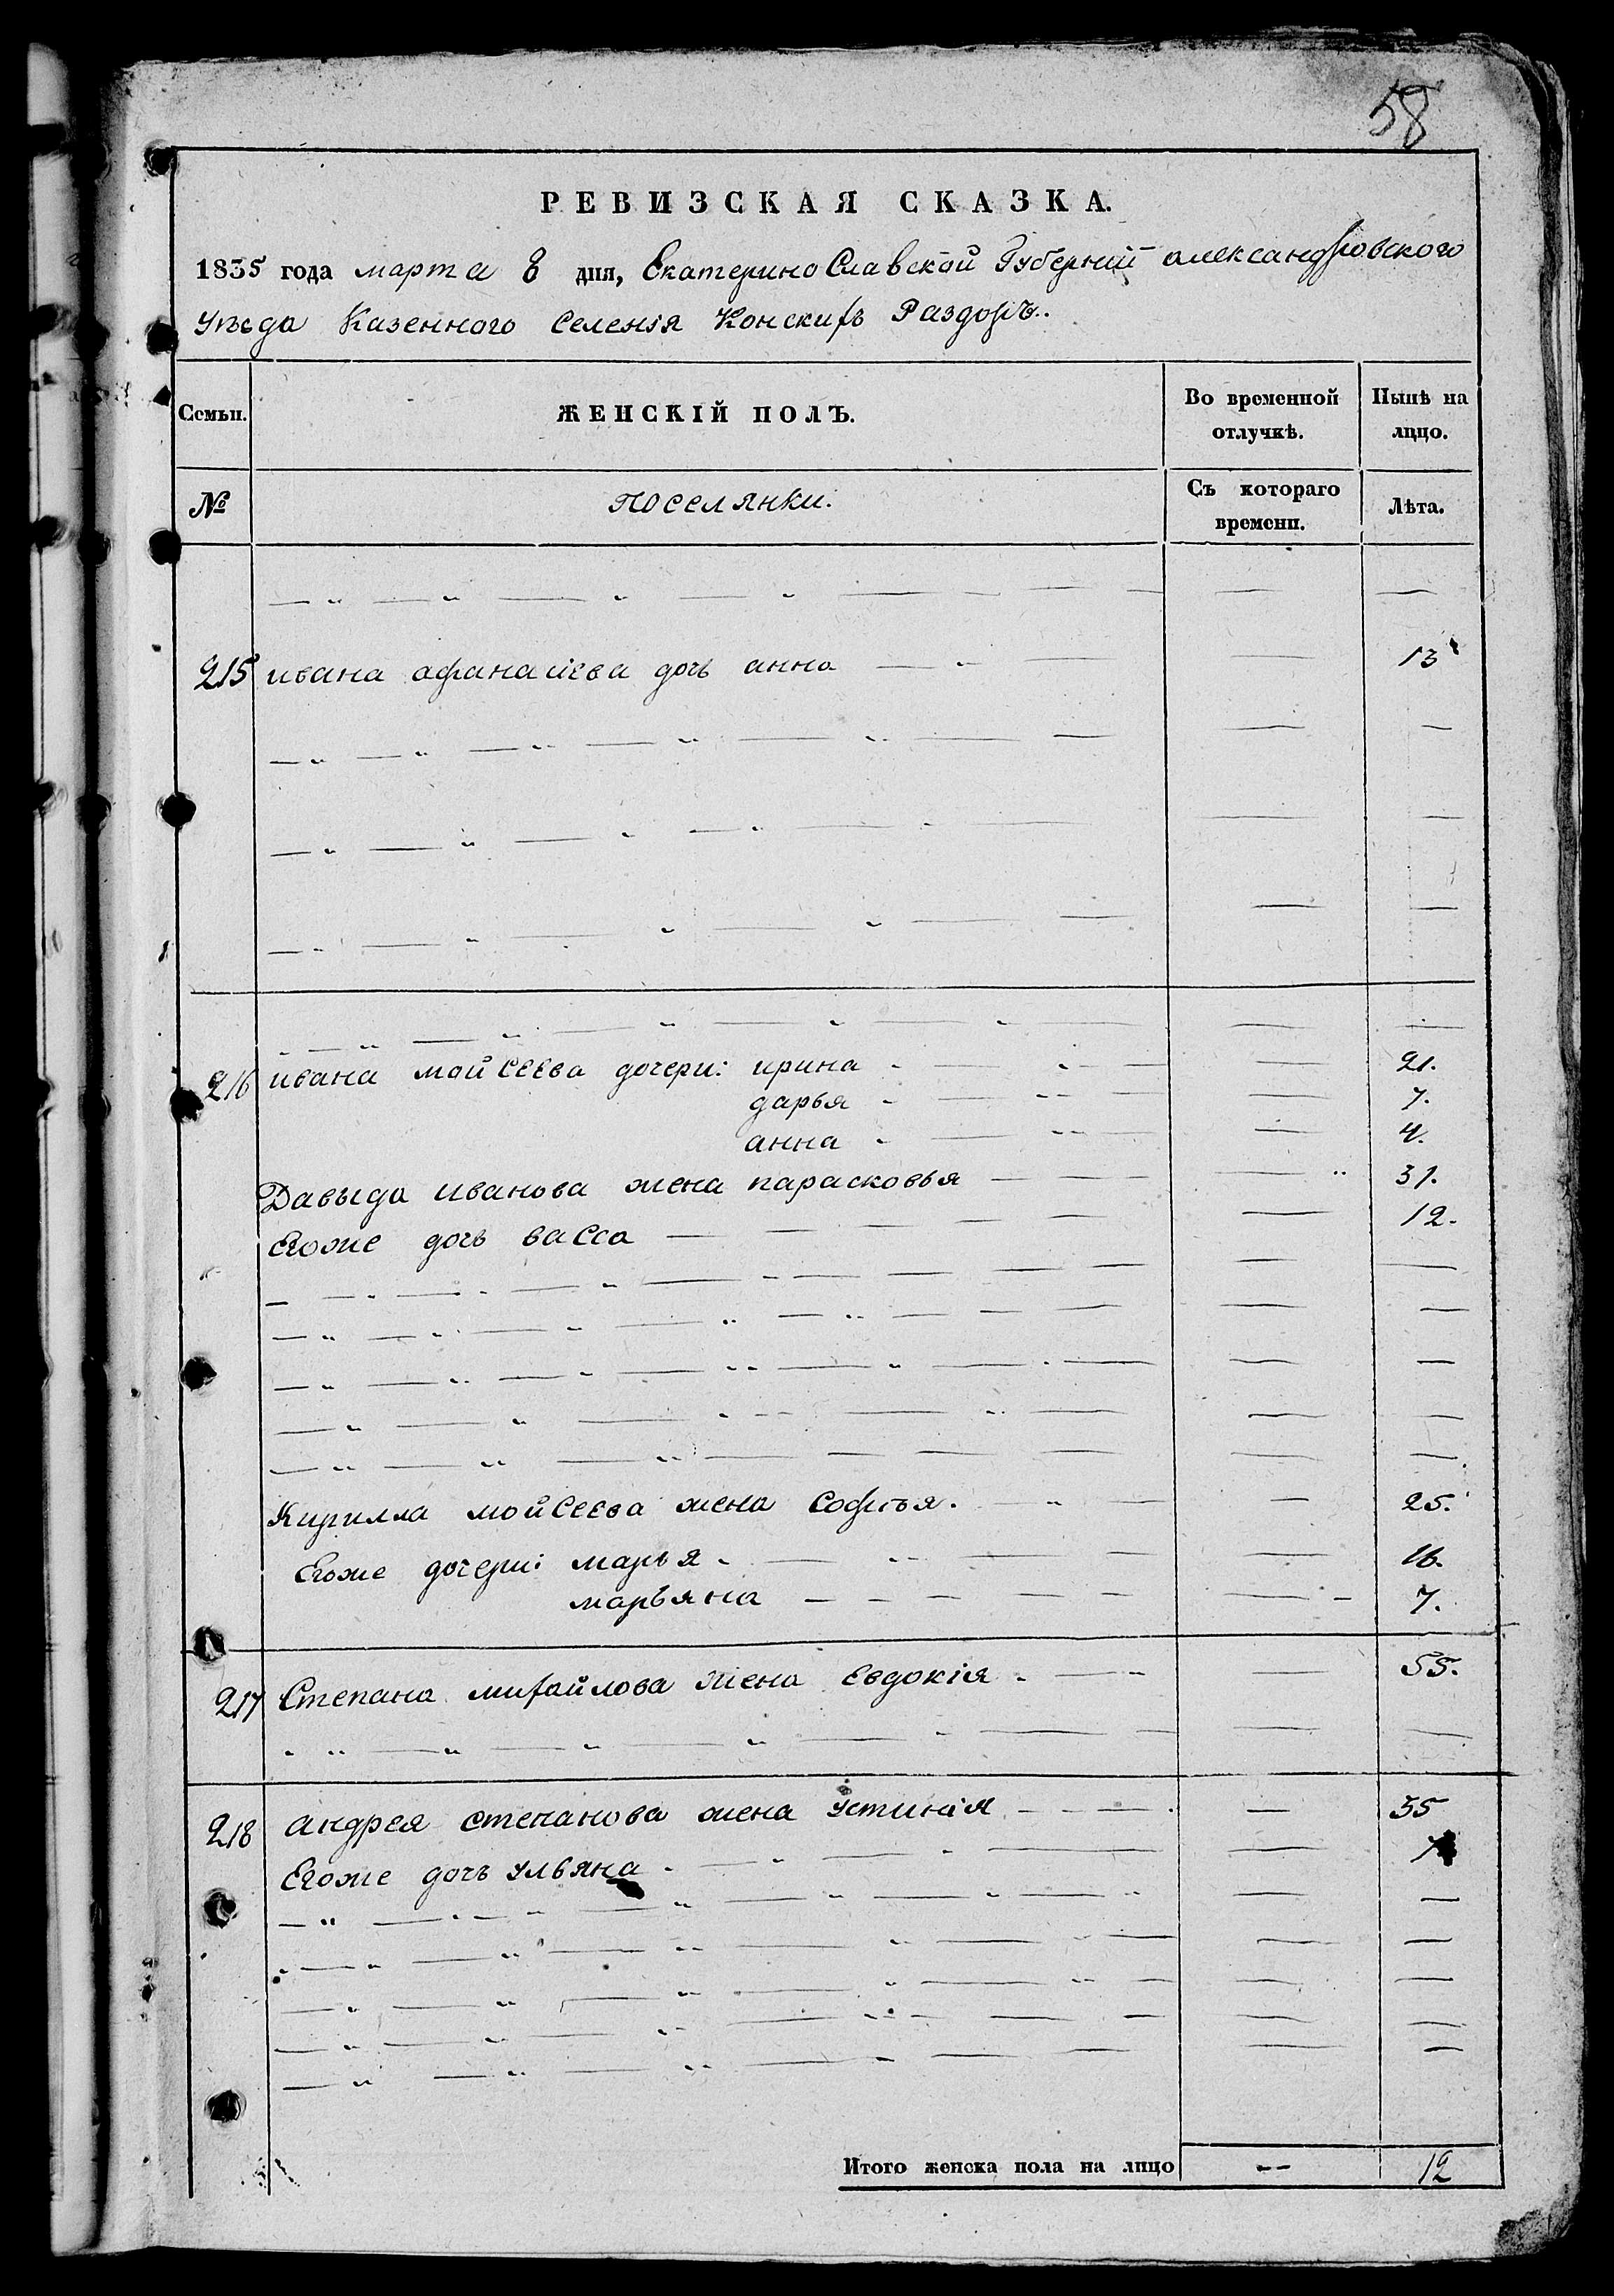 58
РЕВИЗСКАЯ СКАЗКА.
1835 года марта 8 дня, Екатерино Славской Губерніи александровского
Уѣзда Казенного Селенія Конскихъ Раздоръ.
Семьи. ЖЕНСКІЙ ПОЛЪ. Во временной отлучкѣ. Нынѣ на лицо.
№ поселянки. Съ котораго времени. Лѣта.
215 ивана афанасіева дочь анна 13
216 ивана мойсеева дочери: ирина 21.
дарья 7.
анна 4.
Давыда иванова жена парасковья 31.
Егоже дочь васса 12.
Кирилла мойсеева жена Софья. 25.
Егоже дочери: марья 16.
марьяна 7.
217 Степана михайлова жена Евдокія 55.
218 андрея степанова жена Устинія 35
Егоже дочь Ульяна
Итого женска пола на лицо -- 12